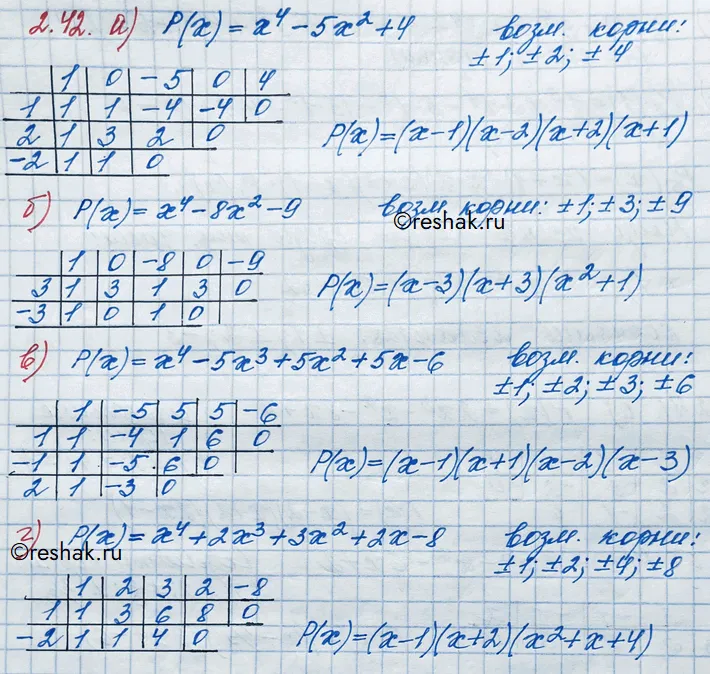 2.42. а) P(x) = x⁴ - 5x² + 4 возм. корни:
±1; ±2; ±4
1 0 -5 0 4
1 1 1 -4 -4 0
2 1 3 2 0
-2 1 1 0
P(x)=(x-1)(x-2)(x+2)(x+1)
б) P(x) = x⁴ - 8x² - 9 возм. корни: ±1; ±3; ±9
©reshak.ru
1 0 -8 0 -9
3 1 3 1 3 0
-3 1 0 1 0
P(x)=(x-3)(x+3)(x²+1)
в) P(x) = x⁴ - 5x³ + 5x² + 5x - 6 возм. корни:
±1; ±2; ±3; ±6
1 -5 5 5 -6
1 1 -4 1 6 0
-1 1 -5 6 0
2 1 -3 0
P(x)=(x-1)(x+1)(x-2)(x-3)
г) P(x) = x⁴ + 2x³ + 3x² + 2x - 8 возм. корни:
©reshak.ru
±1; ±2; ±4; ±8
1 2 3 2 -8
1 1 3 6 8 0
-2 1 1 4 0
P(x)=(x-1)(x+2)(x²+x+4)